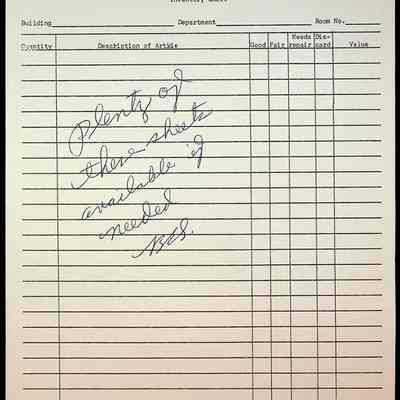 Inventory Sheet
Building Department Room No.
Quantity Description of Article Good Fair Needs repair Dis-card Value
Plenty of
these sheets
available if
needed